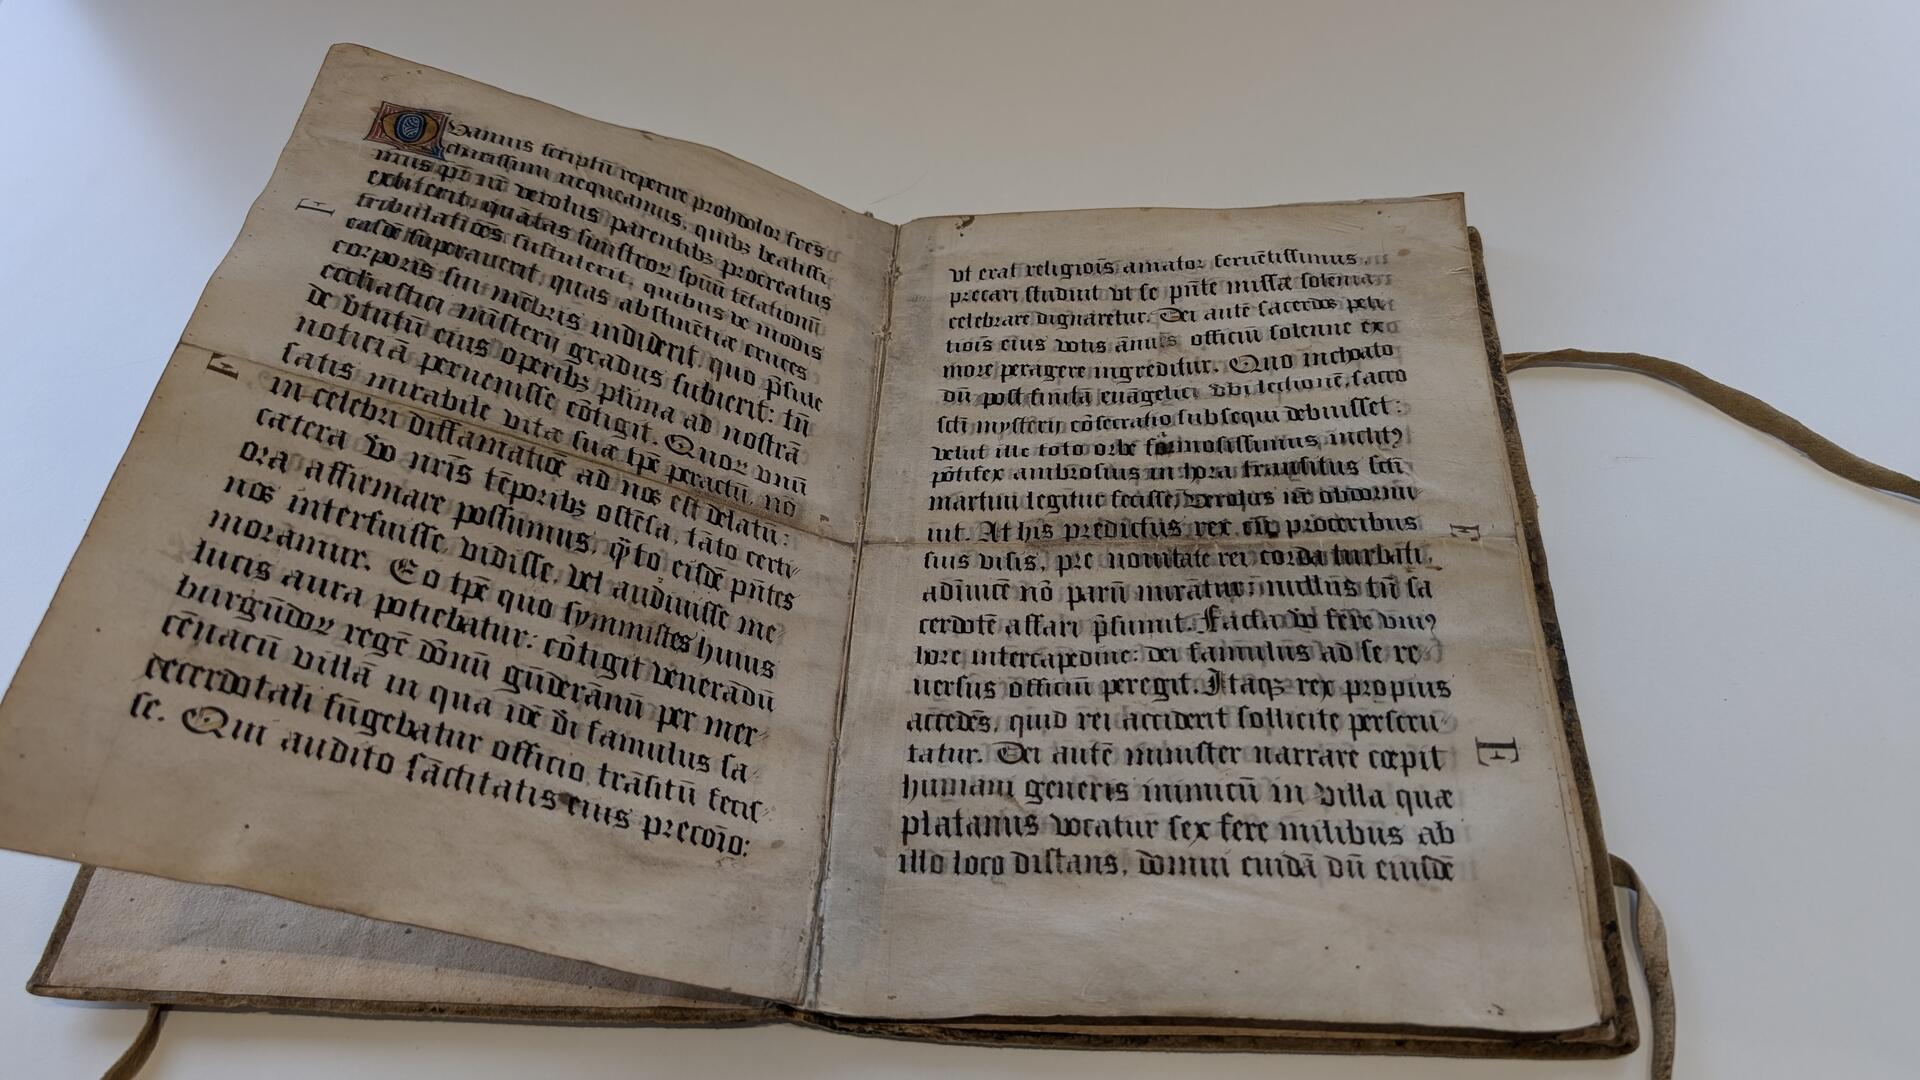 Quamuis scriptū reperire prohdolor frēs
charissimi nequeamus, quibꝫ beatissi
mus nr̄ verolus parentibꝫ procreatus
extiterit, quātas sinistroꝝ spūū tētationū
tribulatiōēs sustulerit, quibus ve modis
easdē superauerit, quas abstinētiæ cruces
corporis sui mēbris indiderit, quo p̄sule
ecclīastici misterij gradus subierit: tn̄
de v̄tutū eius operibꝫ pl'ima ad nostrā
noticiā peruenisse cōtigit. Quoꝝ vnū
satis mirabile vitæ suæ tp̄e peractū, nō
in celebri diffamatiōe ad nos est delatū:
cætera v̄o nr̄is tēporibꝫ ostēsa, tāto certi⸗
ora affirmare possumus, q̄to eisdē p̄n̄tes
nos interfuisse, vidisse, vel audiuisse me⸗
moramur. Eo tp̄e quo symmistes huius
lucis aura potiebatur: cōtigit venerādū
burgūdoꝝ regē dōnū gūderānū per mer⸗
cēnacū villā in qua idē dī famulus sa⸗
cerdotali fūgebatur officio, trāsitū fecis⸗
se. Qui audito sāctitatis eius precōīo:
F
F
vt erat religiōis amator feruētissimus,
precari studuit vt se p̄nte missæ solēnia
celebrare dignaretur. Dei autē sacerdos peti
tiōis eius votis ānuēs officiū solenne ex
more peragere ingreditur. Quo inchoato
dū post finitā euāgelici v̄bi lectionē, sacro
sctī mysterij cōsecratio subsequi debuisset:
velut ille toto orbe formosissimus inclitꝰ
pōtifex ambrosius in hora trāsitus sctī
martini legitur fecisse, verolus nr̄ obdormi⸗
uit. At his predictus rex cū proceribus
suis visis, pre nouitate rei corda turbati,
adīuicē nō parū mirātur: nullus tn̄ sa
cerdotē affari p̄sumit. Facta v̄o fere vniꝰ
hore intercapedine: dei famulus ad se re⸗
uersus officiū peregit. Itaqꝫ rex propius
accedēs, quid rei acciderit sollicite perscru⸗
tatur. Dei autē minister narrare cœpit
humani generis inimicū in villa quæ
platanus vocatur sex fere milibus ab
illo loco distans, domui cuidā dū eiusdē
F
F